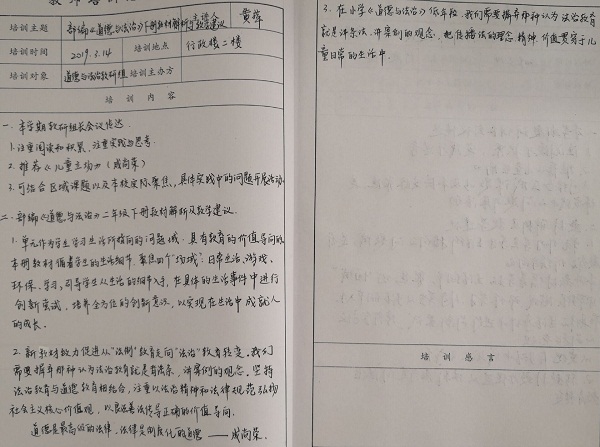 培训主题 部编《道德与法治》下册教材解析及教学建议 主讲人 黄蓓
培训时间 2019.3.14 培训地点 行政楼二楼
培训对象 道德与法治教研组 培训主办方
培训内容
一、本学期教研组长会议传达.
1.注重阅读和积累,注重实践与思考.
2.推荐《儿童立场》(成尚荣)
3.可结合区域课题以及本校实际聚焦,具体实践中的问题开展活动.
二、部编《道德与法治》二年级下册教材解析及教学建议.
1.单元作为学生学习生活所指向的问题域,具有教育的价值导向的
本册教材循着学生的生活细节,聚焦四个"场域":日常生活、游戏、
环保、学习,引导学生从生活的细节入手,在具体的生活事件中进行
创新实践,培养全方位的创新意识,以实现在生活中成就人
的成长.
2.新教材致力促进从"法制"教育走向"法治"教育转变.我们
需要摒弃那种认为法治教育就是看法条,讲案例的观念.坚持
法治教育与道德教育相结合,注重以法治精神和法律规范弘扬
社会主义核心价值观,以良法善治传导正确的价值导向.
道德是最高位的法律,法律是制度化的道德 —— 成尚荣.
3.在小学《道德与法治》低年段,我们需要摒弃那种认为法治教育
就是讲宗法,讲案例的观念,把传播法的理念、精神、价值贯穿于儿
童日常的生活中.
培训感言